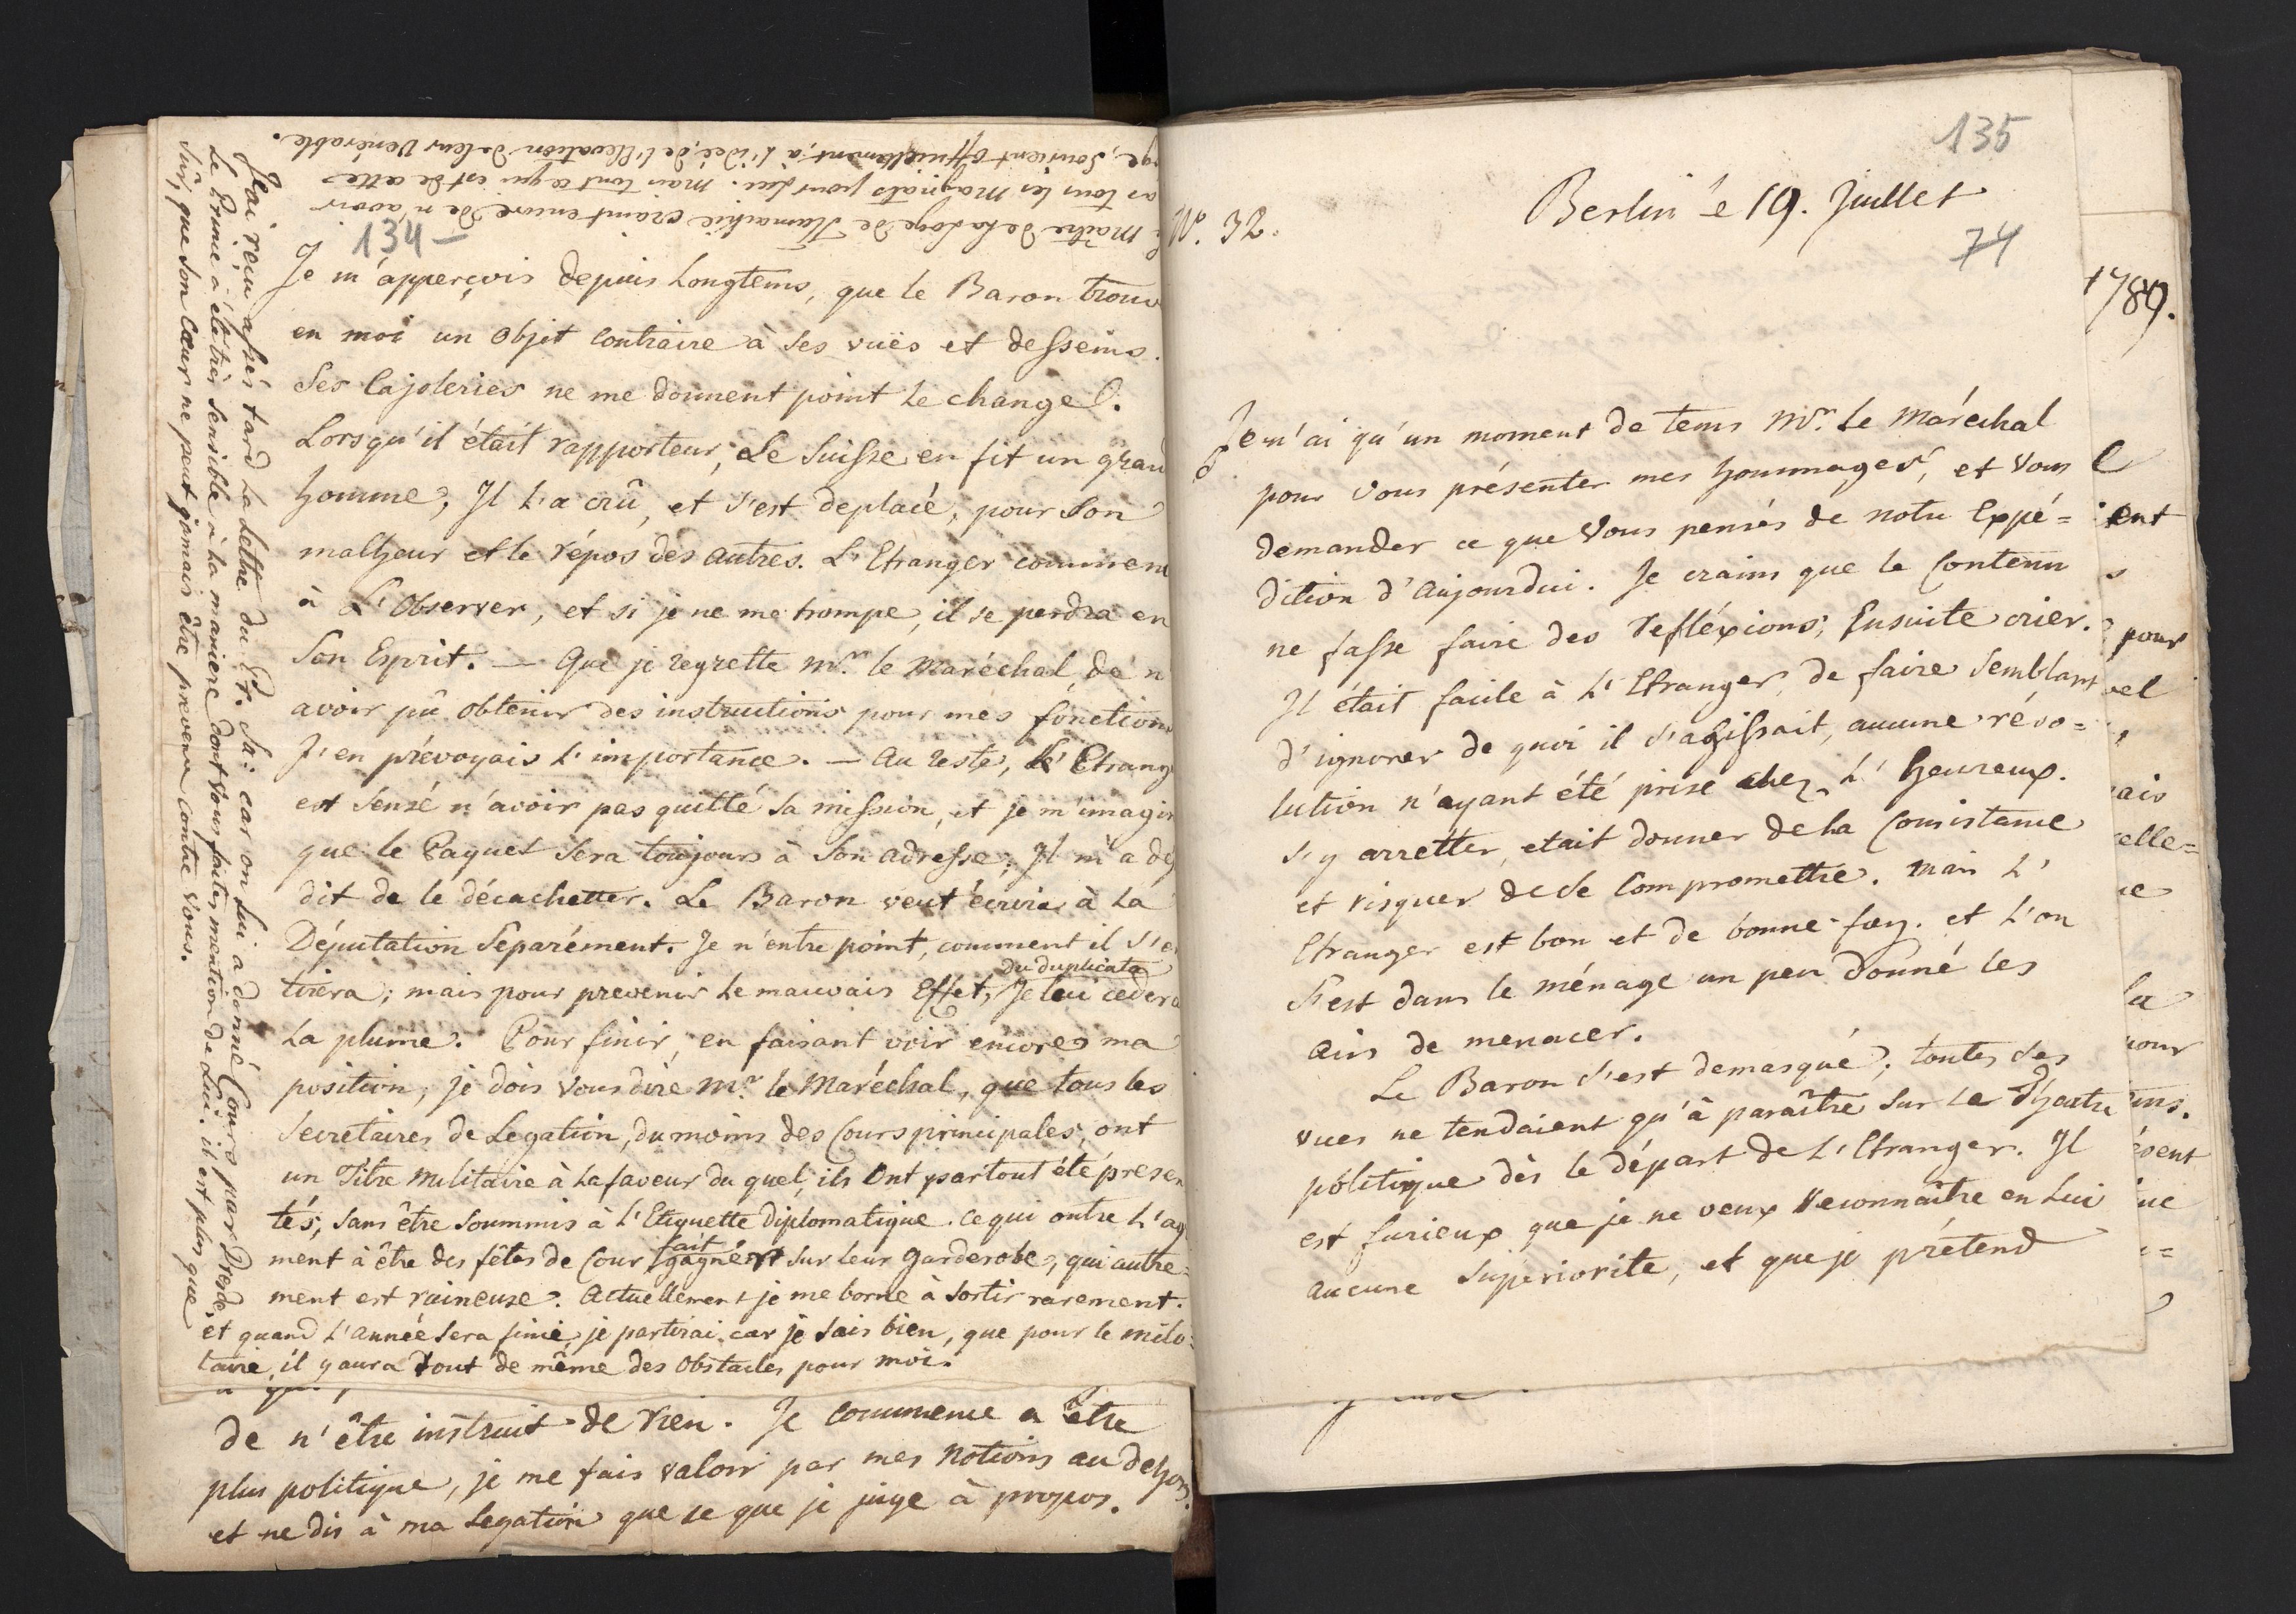 134 –
Je m'apperçois depuis Longtems, que le Baron trouv
en moi un Objet Contraire à Ses vuës et desseins.
Ses Cajoleries ne me donnent point le change.
Lorsqu'il était rapporteur, Le Suisse en fit un gran
homme, Il l'a crû, et s'est deplacé, pour Son
malheur et le répos des autres. L'Etranger commen
à L'Observer, et si je ne me trompe, il se perdra en
Son Esprit. — Que je regrette Mr. le Maréchal, de n
avoir pû obtenir des instructions pour mes fonctions
J'en prévoyais l'importance. — Au reste, L'Etrang
est Sensé n'avoir pas quitté Sa mission, et je m'imagin
que le Paquet Sera toujours à Son adresse; Il m'a de
dit de le décachetter. Le Baron veut écrire à La
Députation Separément. Je n'entre point, comment il S'e
du duplicata
tirera; mais pour prevenir le mauvais Effet, Je lui cedera
La plume. Pour finir, en faisant voir encore ma
position, je dois Vous dire Mr. le Maréchal, que tous les
Secretaires de Legation, du moins des Cours principales, ont
un Titre Militaire à la faveur du quel, ils Ont partout été presen
tés, Sans être Soummis à l'Etiquette Diplomatique. Ce qui outre l'ag
ment à être des fêtes de Cour fait gagner sur leur Garderobe, qui autre=
ment est ruineuse. Actuellement je me borne à Sortir rarement.
et quand l'année Sera finie, je partirai, car je Sais bien, que pour le mili=
taire, il y aura tout de même des Obstacles pour moi.
J'ai reçu assés tard la Lettre du Pr. Sa: car on Lui a donné Cours par Dresde,
Le Prince a été très Sensible à la maniere dont Vous faites mention de Lui. il est plus que
Sûr, que Son Cœur ne peut jamais être prevenu contre Vous.
Maitre de la Loge de Humaihie craint encore de n'avoir
as tous les Magnats pour Lui. Mais tout ce qui est de cette
ge, Souvient Officiellement, à l'idée, de l'Elevation de leur Venerable.
de n'être instruit de rien. Je commence a être
plus politique, je me fais valoir par mes Notions au dehors,
et ne dis à ma Legation que ce que je juge à propos.
135
No. 32.
Berlin le 19. Juillet
74
1789.
Je n'ai qu'un moment de tems Mr. le Maréchal
pour Vous présenter mes hommages, et Vous
demander ce que Vous pensés de notre Expé=
dition d'Aujourdui. Je crains que le Contenu
ne fasse faire des refléxions, Ensuite crier.
Il était facile à L'Etranger, de faire Semblant
d'ignorer de quoi il s'agissait, aucune réso=
lution n'ayant été prise chez L'heureux.
S'y arretter, etait donner de la Consistance
et risquer de Se Compromettre. Mais L'
Etranger est bon et de bonne foy. et l'on
S'est dans le ménage un peu donné les
airs de menacer.
Le Baron s'est demasqué; toutes Ses
vues ne tendaient qu'à paraître Sur Le Théatre
politique dès le départ de L'Etranger. Il
est furieux que je ne veux reconnaître en Lui
aucune Superiorite, et que je prétend
ent
s
pour
el
ais
elle=
ce
la
our
ins.
event
ue